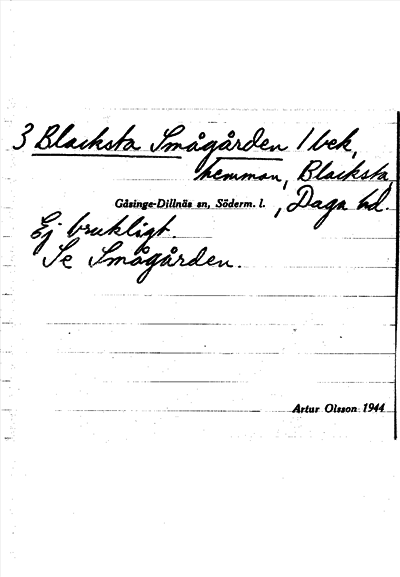 3 Blacksta Smågården 1 bek,
hemman, Blacksta,
Gåsinge-Dillnäs sn, Söderm. l. , Daga hd.
Ej brukligt.
Se Smågården.
Artur Olsson 1944